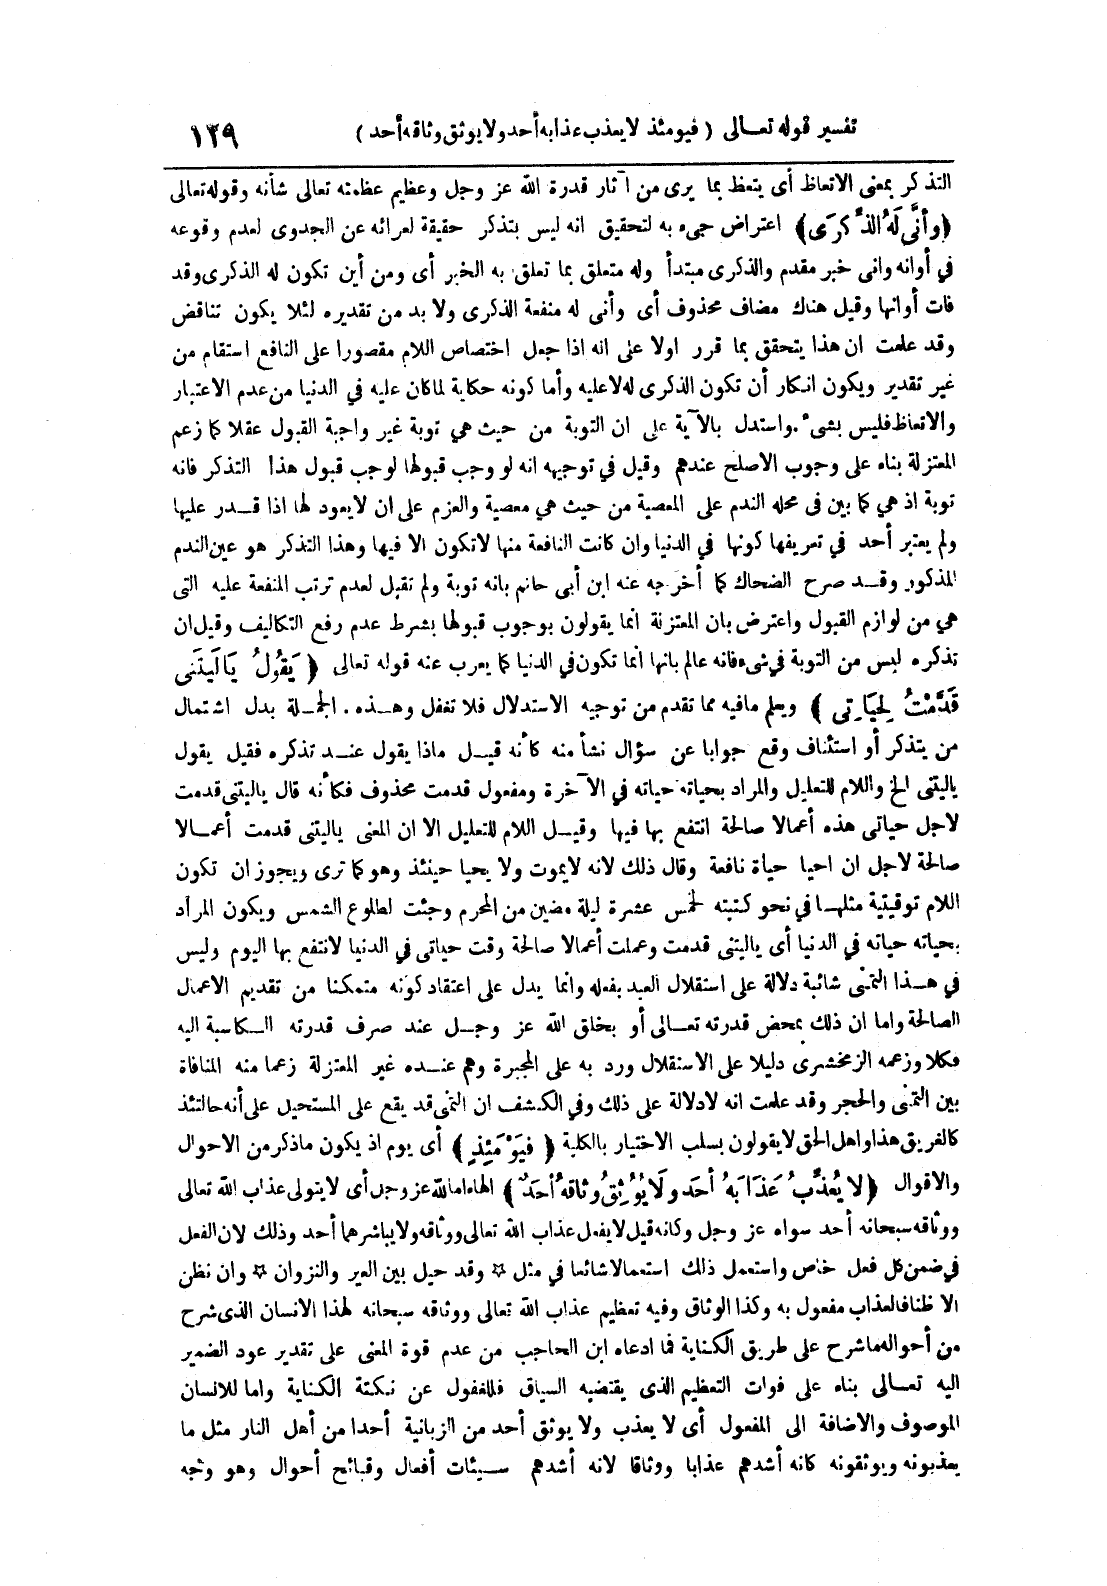 تفسير قوله تعالى ( فيومئذ لا يعذب عذابه أحد ولا يوثق وثاقه أحد ) ١٢٩
التذكر بمعنى الاتعاظ أى يتعظ بما يرى من آثار قدرة الله عز وجل وعظيم عظمته تعالى شأنه وقوله تعالى
﴿وأَنَّى لَهُ الذِّكْرَى﴾ اعتراض جىء به لتحقيق انه ليس بتذكر حقيقة لعرائه عن الجدوى لعدم وقوعه
في أوانه وانى خبر مقدم والذكرى مبتدأ وله متعلق بما تعلق به الخبر أى ومن أين تكون له الذكرى وقد
فات أوانها وقيل هناك مضاف محذوف أى وأنى له منفعة الذكرى ولا بد من تقديره لئلا يكون تناقض
وقد علمت ان هذا يتحقق بما قرر اولا على انه اذا جعل اختصاص اللام مقصورا على النافع استقام من
غير تقدير ويكون انكار أن تكون الذكرى له لاعليه وأما كونه حكاية لما كان عليه في الدنيا من عدم الاعتبار
والاتعاظ فليس بشىء. واستدل بالآية على ان التوبة من حيث هي توبة غير واجبة القبول عقلا كما زعم
المعتزلة بناء على وجوب الاصلح عندهم وقيل في توجيهه انه لو وجب قبولها لوجب قبول هذا التذكر فانه
توبة اذ هي كما بين فى محله الندم على المعصية من حيث هي معصية والعزم على ان لايعود لها اذا قـدر عليها
ولم يعتبر أحد في تعريفها كونها في الدنيا وان كانت النافعة منها لاتكون الا فيها وهذا التذكر هو عين الندم
المذكور وقـد صرح الضحاك كما أخرجه عنه ابن أبى حاتم بانه توبة ولم تقبل لعدم ترتب المنفعة عليه التى
هي من لوازم القبول واعترض بان المعتزلة انما يقولون بوجوب قبولها بشرط عدم رفع التكاليف وقيل ان
تذكره ليس من التوبة في شىء فانه عالم بانها انما تكون في الدنيا كما يعرب عنه قوله تعالى ﴿ يَقُولُ يَالَيْتَنِى
قَدَّمْتُ لِحَيَاتِى ﴾ ويعلم مافيه مما تقدم من توجيه الاستدلال فلا تغفل وهـذه. الجمـلة بدل اشتمال
من يتذكر أو استئناف وقع جوابا عن سؤال نشأ منه كأنه قيـل ماذا يقول عنـد تذكره فقيل يقول
ياليتنى الخ واللام للتعليل والمراد بحياته حياته في الآخرة ومفعول قدمت محذوف فكأنه قال ياليتنى قدمت
لاجل حياتى هذه أعمالا صالحة انتفع بها فيها وقيـل اللام للتعليل الا ان المعنى ياليتنى قدمت أعمـالا
صالحة لاجل ان احيا حياة نافعة وقال ذلك لانه لايموت ولا يحيا حينئذ وهو كما ترى ويجوز ان تكون
اللام توقيتية مثلهـا في نحو كتبته لخمس عشرة ليلة مضين من المحرم وجئت لطلوع الشمس ويكون المراد
بحياته حياته في الدنيا أى ياليتنى قدمت وعملت أعمالا صالحة وقت حياتى في الدنيا لانتفع بها اليوم وليس
في هـذا التمنى شائبة دلالة على استقلال العبد بفعله وانما يدل على اعتقاد كونه متمكنا من تقديم الاعمال
الصالحة واما ان ذلك بمحض قدرته تعـالى أو بخلق الله عز وجـل عند صرف قدرته الـكاسبة اليه
فكلا وزعمه الزمخشرى دليلا على الاستقلال ورد به على المجبرة وهم عنـده غير المعتزلة زعما منه المنافاة
بين التمنى والحجر وقد علمت انه لادلالة على ذلك وفي الكشف ان التمنى قد يقع على المستحيل على أنه حالتئذ
كالغريق هذا واهل الحق لا يقولون بسلب الاختيار بالكلية ﴿ فَيَوْمَئِذٍ ﴾ أى يوم اذ يكون ماذكر من الاحوال
والاقوال ﴿لا يُعَذِّبُ عَذَابَهُ أَحَدٌ وَلَا يُوثِقُ وثَاقَهُ أَحَدٌ﴾ الهاء اما لله عز وجل أى لا يتولى عذاب الله تعالى
ووثاقه سبحانه أحد سواه عز وجل وكانه قيل لا يفعل عذاب الله تعالى ووثاقه ولا يباشرهما أحد وذلك لان الفعل
في ضمن كل فعل خاص واستعمل ذلك استعمالا شائعا في مثل ☆ وقد حيل بين العير والنزوان ☆ وان نظن
الا ظنا فالعذاب مفعول به وكذا الوثاق وفيه تعظيم عذاب الله تعالى ووثاقه سبحانه لهذا الانسان الذى شرح
من أحواله ما شرح على طريق الكناية فما ادعاه ابن الحاجب من عدم قوة المعنى على تقدير عود الضمير
اليه تعـالى بناء على فوات التعظيم الذى يقتضيه السياق فللغفول عن نكتة الكناية واما للانسان
الموصوف والاضافة الى المفعول أى لا يعذب ولا يوثق أحد من الزبانية أحدا من أهل النار مثل ما
يعذبونه ويوثقونه كانه أشدهم عذابا ووثاقا لانه أشدهم سـيئات أفعال وقبائح أحوال وهو وجه